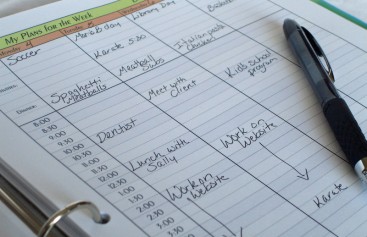 My Plans for the Week
Library Day
Soccer
Karate 5:30
Spaghetti
Meatballs
Meatball
Subs
Italian
Chicken
Meet with
Client
Kid's School
program
8:00
8:30
9:00
9:30
10:00
10:30
11:00
11:30
12:00
12:30
1:00
1:30
2:00
2:30
3:00
Dentist
Lunch with
Sally
Work on
Website
Work on
Website
Karate